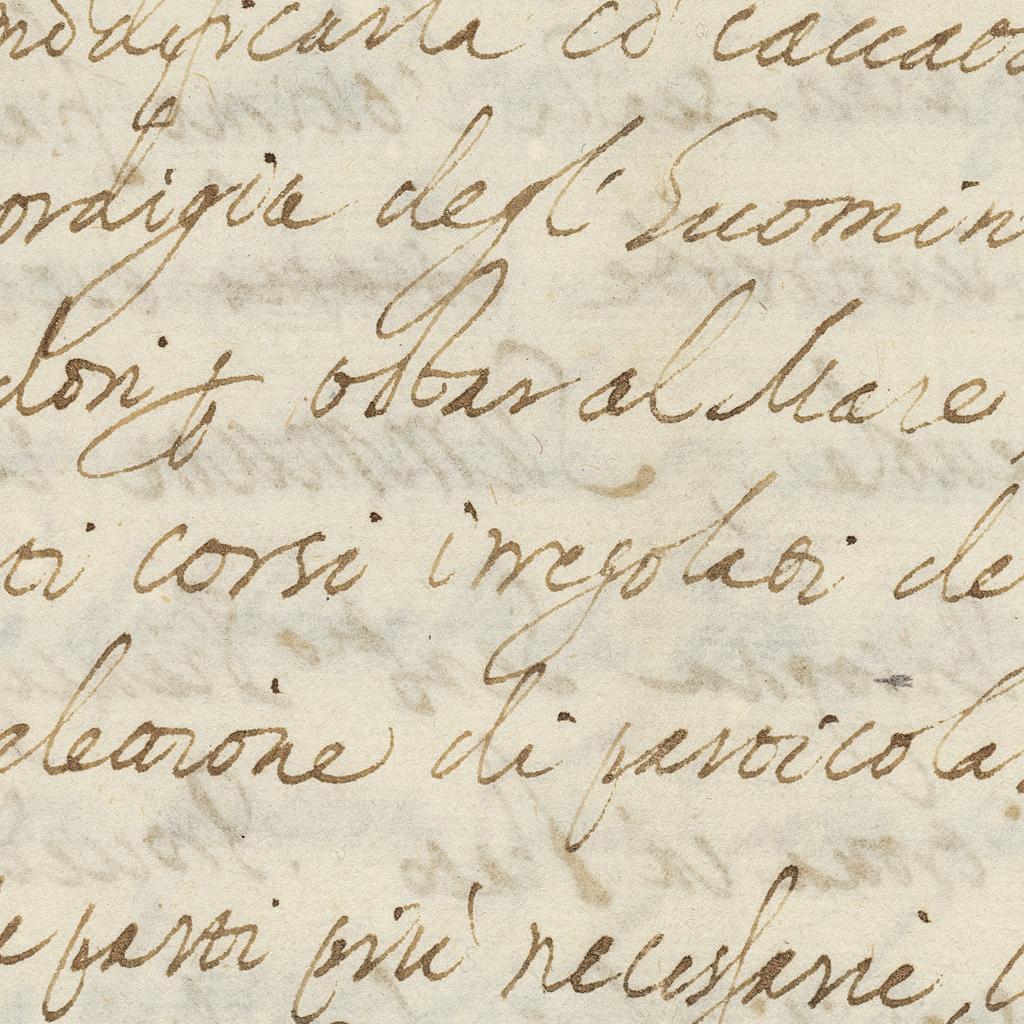 modificarla cō caccar
ordigia degl' Huomin
don ꝑ ostar al Mare
ti corsi irregolati de
alettione di particola
e parti più necessarie,